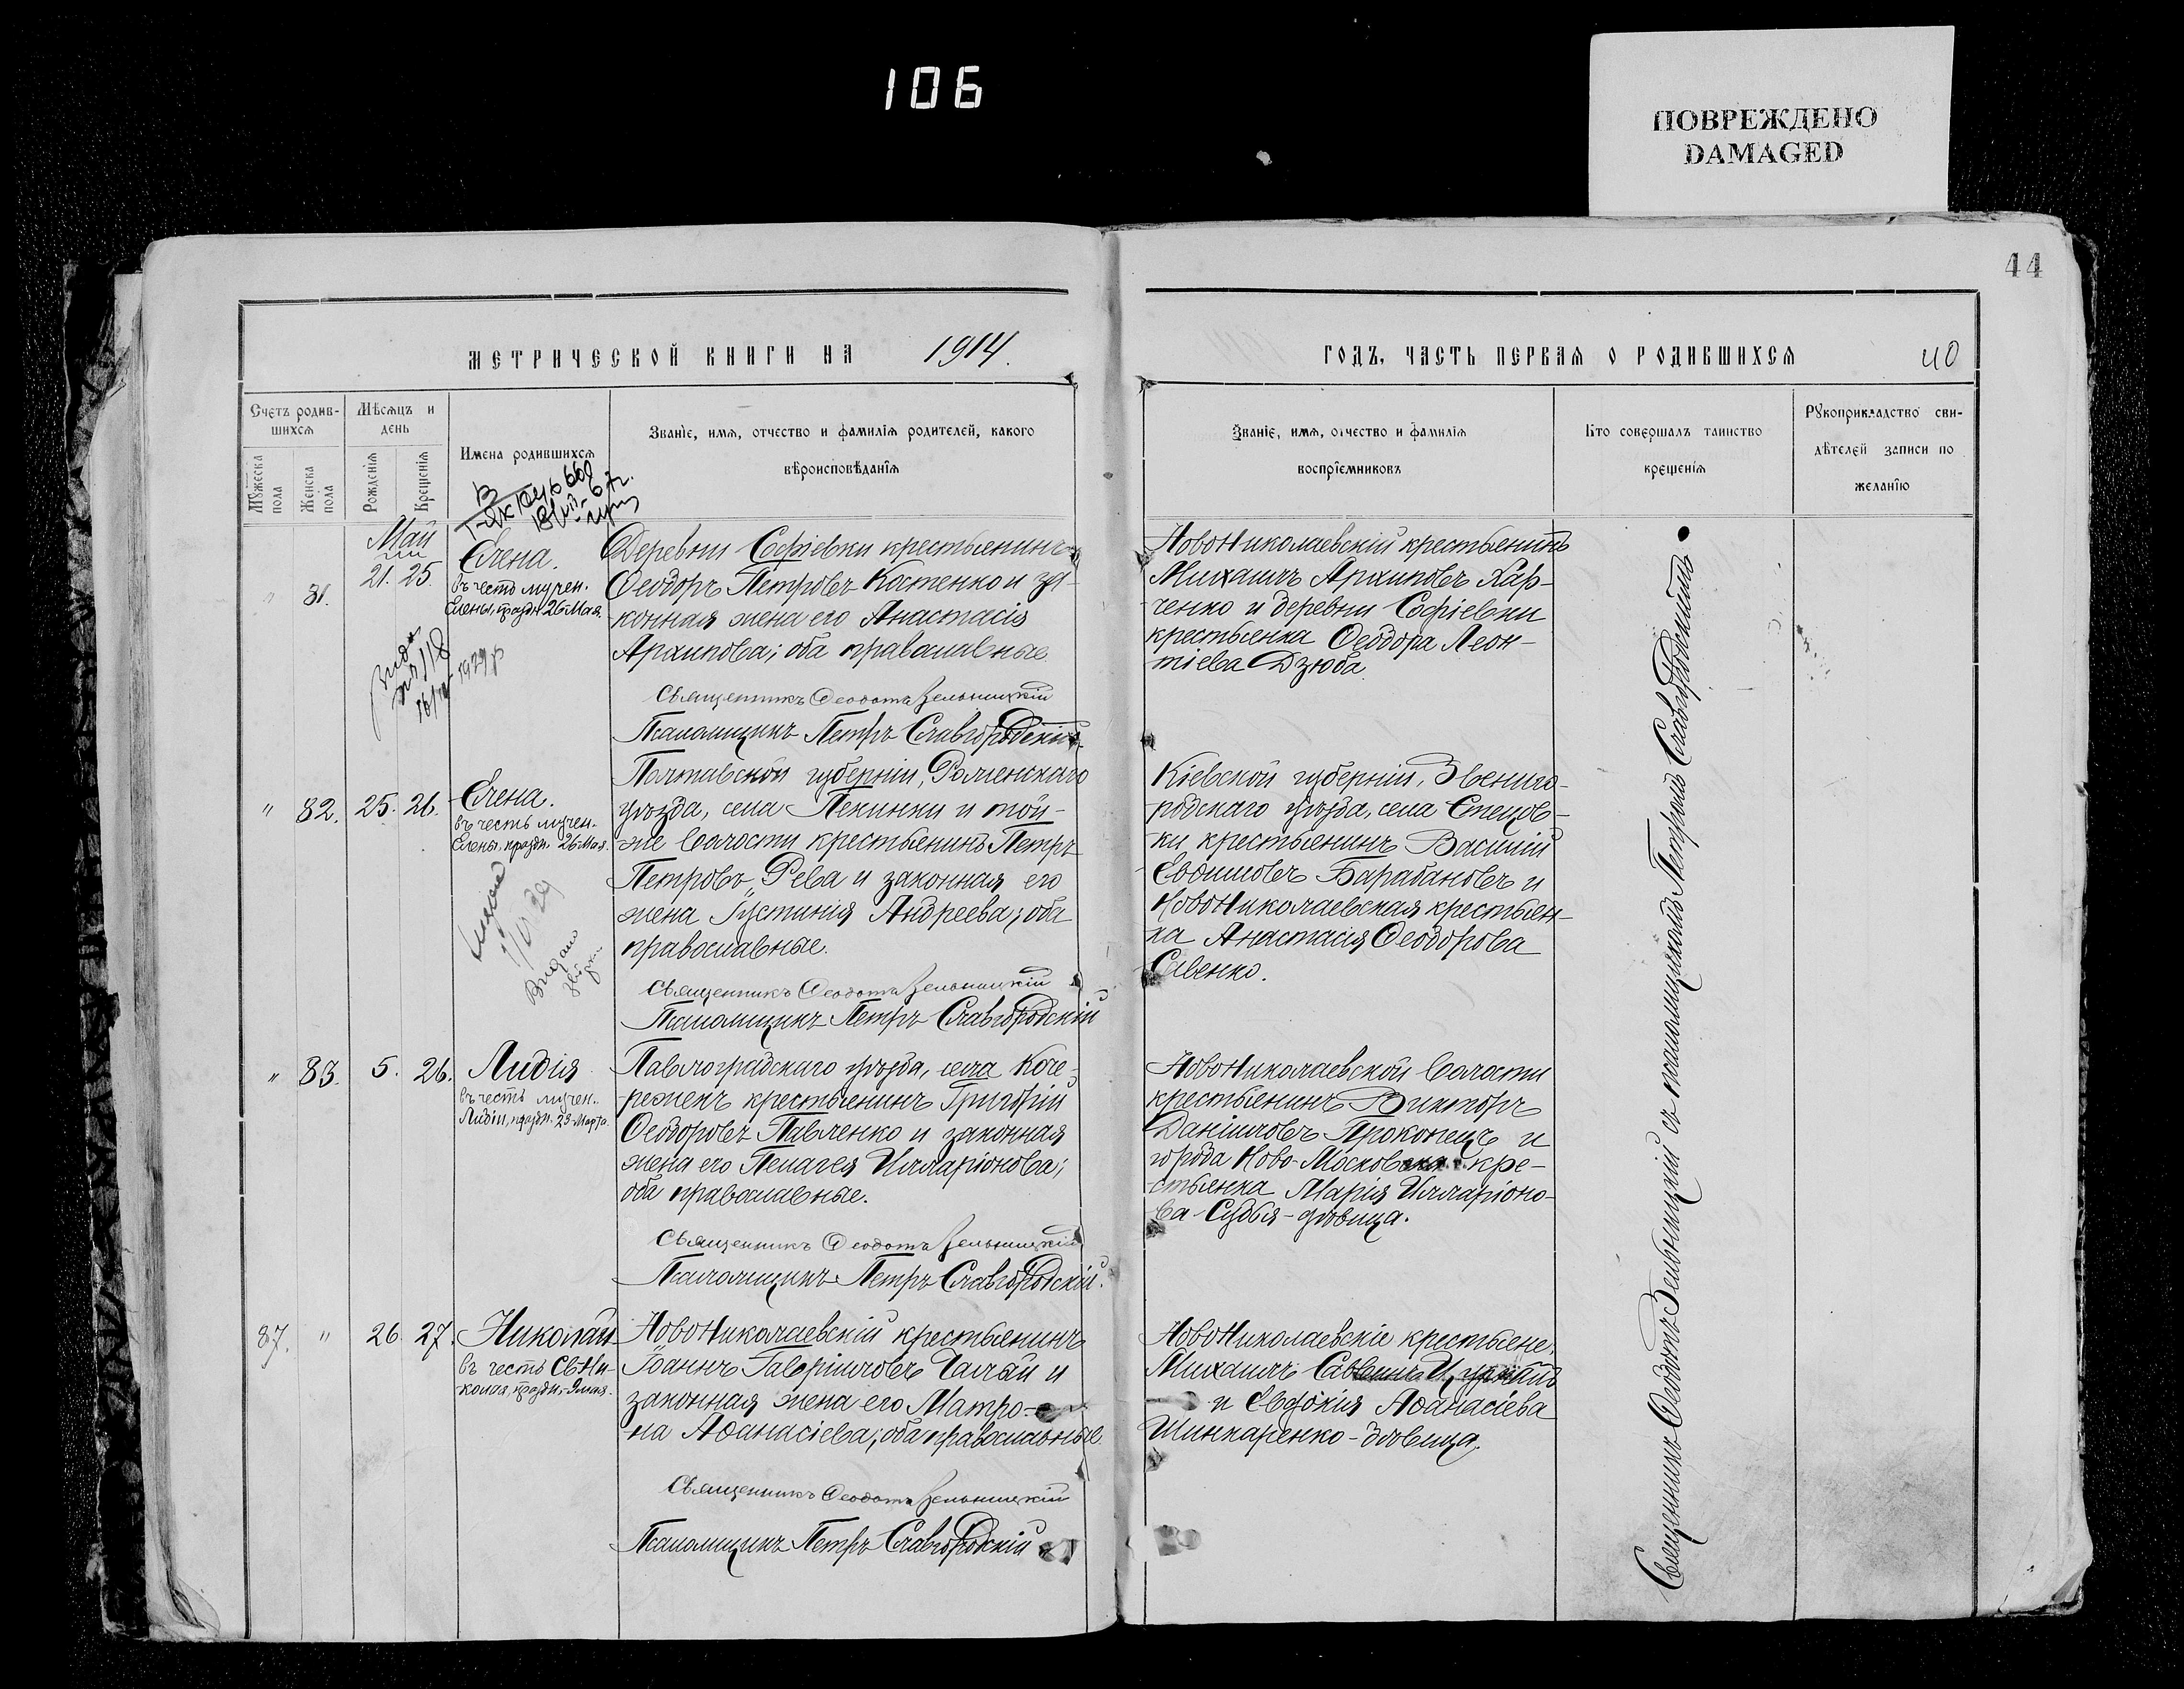 106
ПОВРЕЖДЕНО
DAMAGED
44
МЕТРИЧЕСКОЙ КНИГИ НА 1914.
ГОДЪ, ЧАСТЬ ПЕРВАЯ О РОДИВШИХСЯ
40
Счетъ родив-
шихся
Мужеска
пола
Женска
пола
Мѣсяцъ и
день
Рожденія
Крещенія
Имена родившихся
Званіе, имя, отчество и фамилія родителей, какого
вѣроисповѣданія
Званіе, имя, отчество и фамилія
воспріемниковъ
Кто совершалъ таинство
крещенія
Рукоприкладство сви-
дѣтелей записи по
желанію
Май
" 81. 21. 25.
Елена.
въ честь мучен.
Елены, праздн. 26 Мая.
Деревни Софіевки крестьянинъ
Ѳеодоръ Петровъ Костенко и за-
конная жена его Анастасія
Архипова; оба православные.
Священникъ Ѳеодотъ Зельницкій
Псаломщикъ Петръ Славгородскій.
НовоНиколаевскій крестьянинъ
Михаилъ Архиповъ Хар-
ченко и деревни Софіевки
крестьянка Ѳеодора Леон-
тіева Дзюба.
№ 118
1929 р
" 82. 25. 26.
Елена.
въ честь мучен.
Елены, праздн. 26 Мая.
Полтавской губерніи, Роменскаго
уѣзда, села Пекинки и той-
же волости крестьянинъ Петръ
Петровъ Рева и законная его
жена Іустинія Андреева; оба
православные.
Священникъ Ѳеодотъ Зельницкій
Псаломщикъ Петръ Славгородскій
Кіевской губерніи, Звениго-
родскаго уѣзда, села Стецов-
ки крестьянинъ Василій
Евдимовъ Барабановъ и
НовоНиколаевская крестьян-
ка Анастасія Ѳеодорова
Савенко.
" 83. 5. 26.
Лидія
въ честь мучен.
Лидіи, праздн. 23 Марта.
Павлоградскаго уѣзда, села Коче-
режекъ крестьянинъ Григорій
Ѳеодоровъ Павленко и законная
жена его Пелагея Илларіонова;
оба православные.
Священникъ Ѳеодотъ Зельницкій
Псаломщикъ Петръ Славгородскій.
НовоНиколаевской волости
крестьянинъ Викторъ
Даніиловъ Прокопецъ и
города Ново-Московска кре-
стьянка Марія Илларіоно-
ва Судья-вдовица.
87. " 26. 27.
Николай
въ честь Св. Ни-
колая, праздн. 9 мая.
НовоНиколаевскій крестьянинъ
Іоаннъ Гавріиловъ Галай и
законная жена его Матро-
на Аѳанасіева; оба православные.
Священникъ Ѳеодотъ Зельницкій
Псаломщикъ Петръ Славгородскій
НовоНиколаевскіе крестьяне:
Михаилъ Саввинъ
и Евдокія Аѳанасіева
Шинкаренко-вдовица.
Священникъ Ѳеодотъ Зельницкій съ псаломщикомъ Петромъ Славгородскимъ